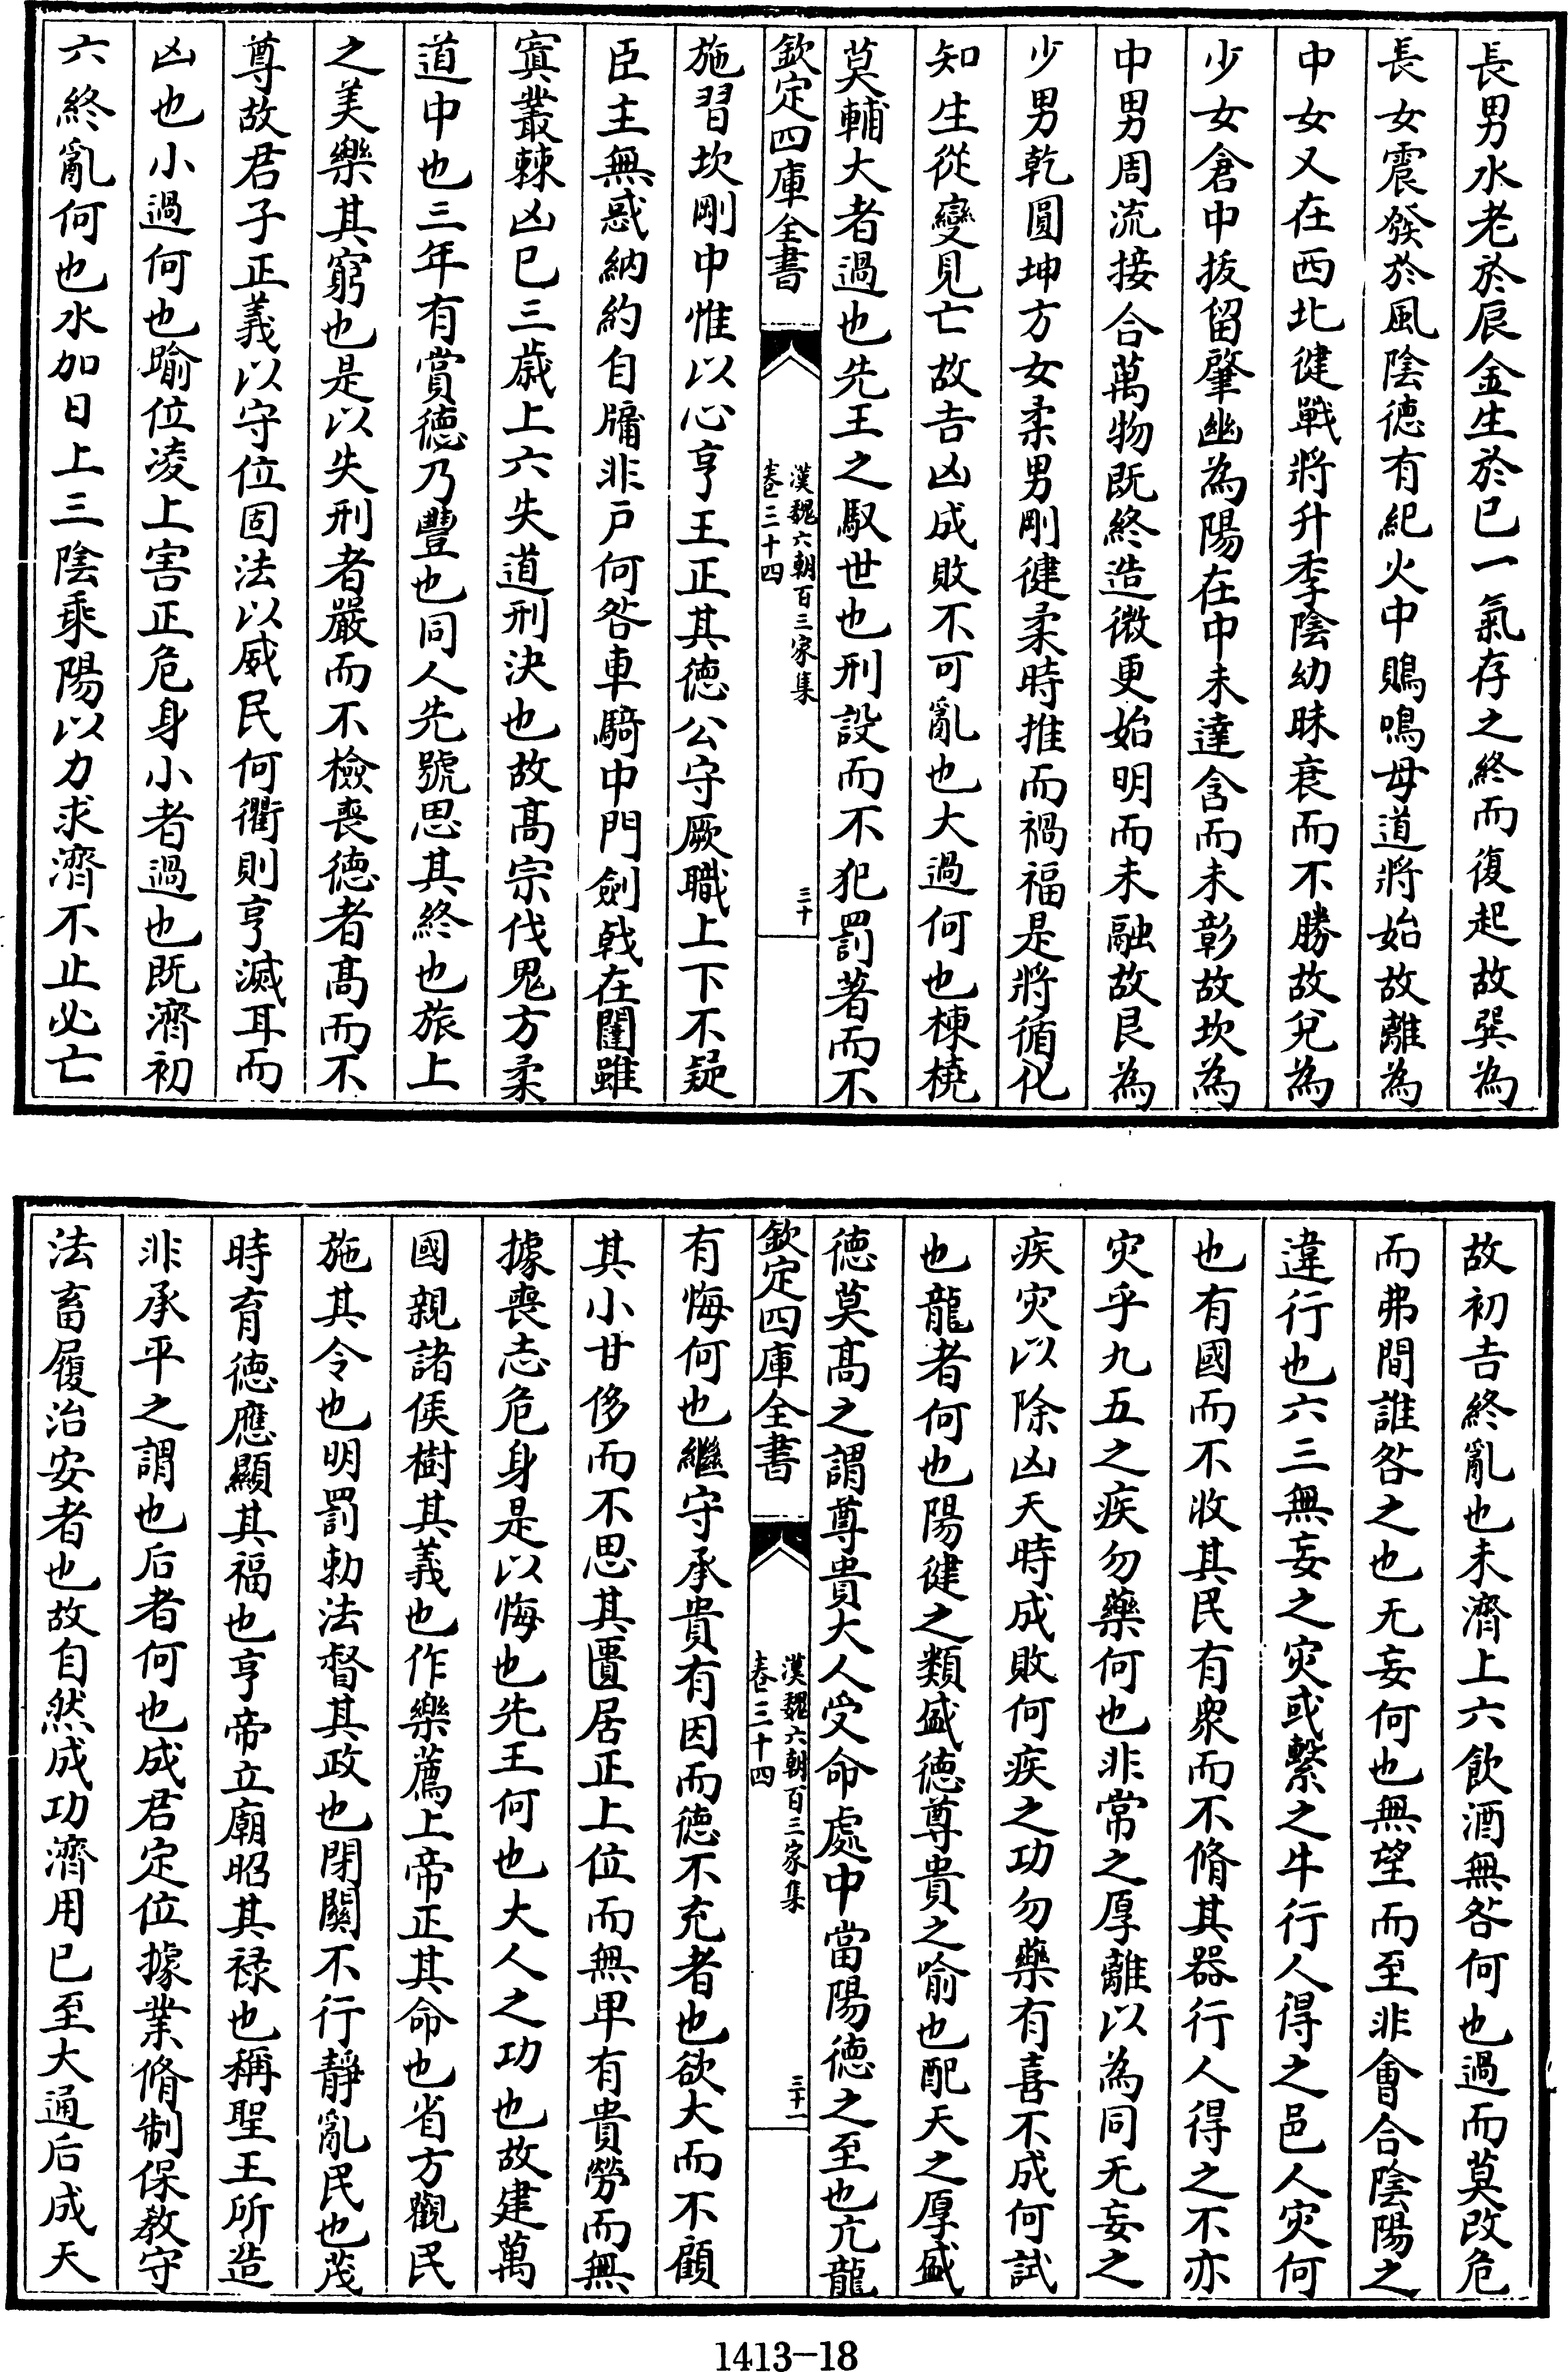 長男水老於辰金生於巳一氣存之終而復起故巽為
長女震發於風陰德有紀火中鵙鳴母道將始故離為
中女又在西北健戰將升季陰幼昧衰而不勝故兌為
少女倉中拔留肇幽為陽在中未達含而未彰故坎為
中男周流接合萬物既終造微更始明而未融故艮為
少男乾圓坤方女柔男剛健柔時推而禍福是將循化
知生從變見亡故吉凶成敗不可亂也大過何也棟橈
莫輔大者過也先王之馭世也刑設而不犯罰著而不
欽定四庫全書
漢魏六朝百三家集
卷三十四
三十
施習坎剛中惟以心亨王正其德公守厥職上下不疑
臣主無惑納約自牖非戶何咎車騎中門劍戟在闈雖
寘叢棘凶已三歲上六失道刑決也故高宗伐鬼方柔
道中也三年有賞德乃豐也同人先號思其終也旅上
之美樂其窮也是以失刑者嚴而不檢喪德者高而不
尊故君子正義以守位固法以威民何衢則亨滅耳而
凶也小過何也踰位凌上害正危身小者過也既濟初
六終亂何也水加日上三陰乘陽以力求濟不止必亡
故初吉終亂也未濟上六飲酒無咎何也過而莫改危
而弗間誰咎之也无妄何也無望而至非會合陰陽之
違行也六三無妄之灾或繫之牛行人得之邑人灾何
也有國而不收其民有衆而不脩其器行人得之不亦
灾乎九五之疾勿藥何也非常之厚離以為同无妄之
疾灾以除凶天時成敗何疾之功勿藥有喜不成何試
也龍者何也陽健之類盛德尊貴之喻也配天之厚盛
德莫高之謂尊貴大人受命處中當陽德之至也亢龍
欽定四庫全書
漢魏六朝百三家集
卷三十四
三十一
有悔何也繼守承貴有因而德不充者也欲大而不顧
其小甘侈而不思其匱居正上位而無卑有貴勞而無
據喪志危身是以悔也先王何也大人之功也故建萬
國親諸侯樹其義也作樂薦上帝正其命也省方觀民
施其令也明罰勅法督其政也閉關不行靜亂民也茂
時育德應顯其福也亨帝立廟昭其禄也稱聖王所造
非承平之謂也后者何也成君定位據業脩制保教守
法畜履治安者也故自然成功濟用已至大通后成天
1413-18